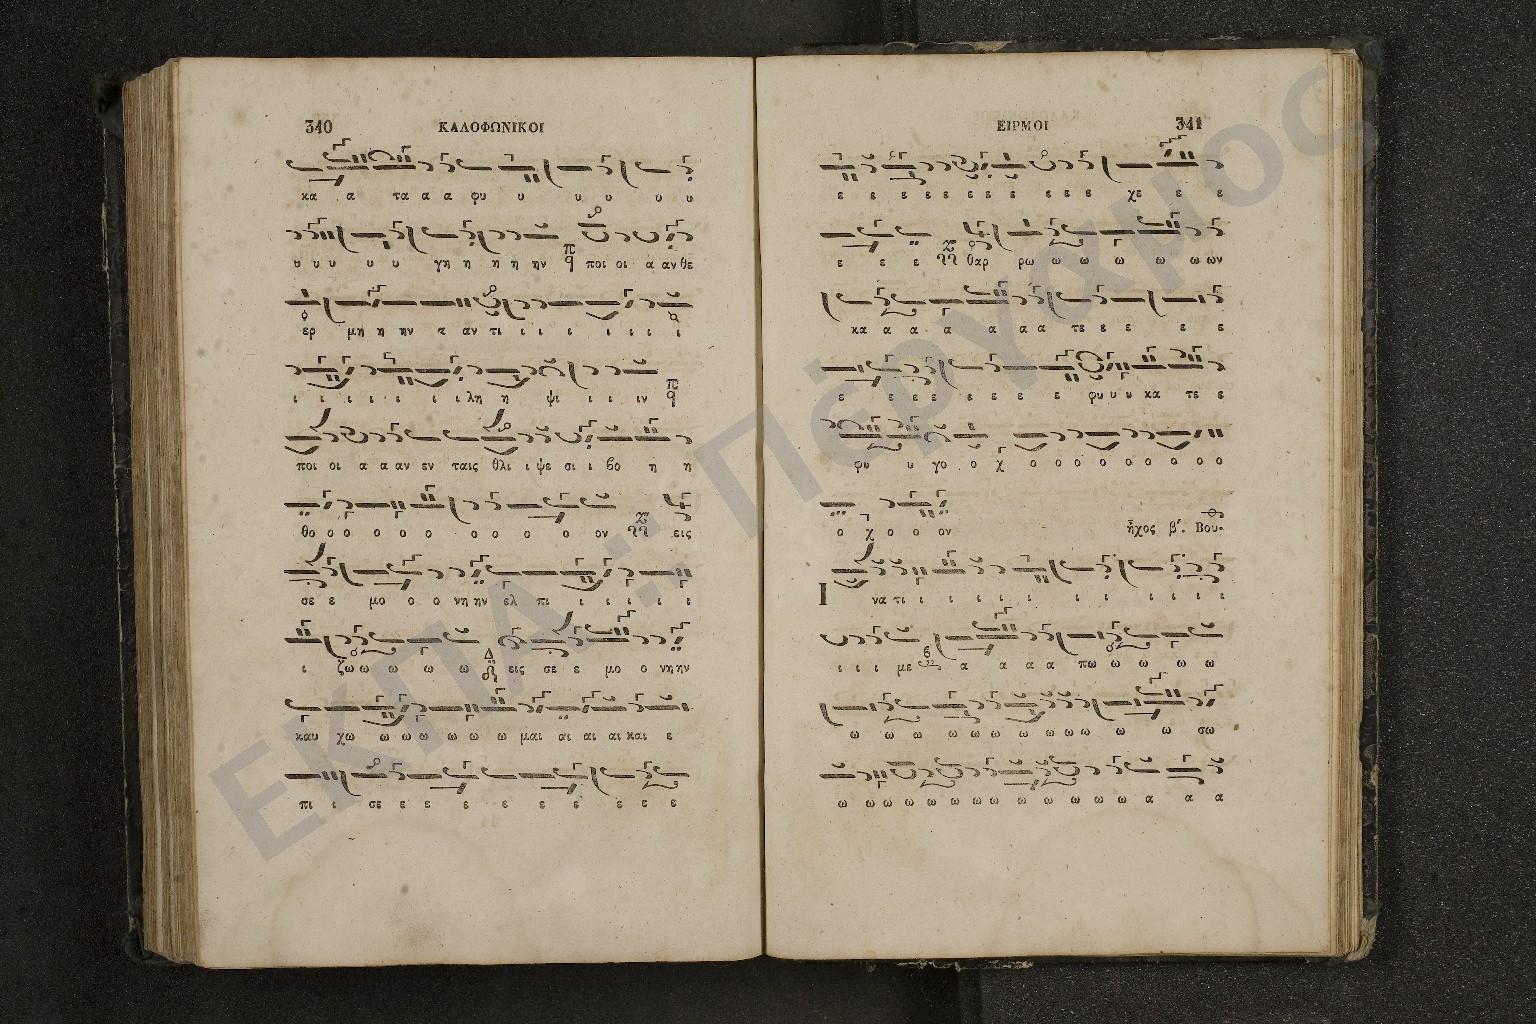 340
ΚΑΛΟΦΩΝΙΚΟΙ
κα α τα α α φυ υ υ υ υ υ
υ υ υ υ υ γη η η η ην ποι οι α αν θε
ερ μη η ην α αν τι ι ι ι ι ι ι ι
ι ι ι ι ι ι λη η ψι ι ι ιν
ποι οι α α αν εν ταις θλι ι ψε σι ι βο η η
θο ο ο ο ο ο ο ο ο ο ον εις
σε ε μο ο ο νη ην ελ πι ι ι ι ι ι
ι ζω ω ω ω ω ω εις σε ε μο ο νη ην
καυ χω ω ω ω ω ω ω μαι αι αι αι και ε
πι ι σε ε ε ε ε ε ε ε ε ε
ΕΙΡΜΟΙ
341
ε ε ε ε ε ε ε ε ε ε ε ε χε ε ε
ε ε ε θαρ ρω ω ω ω ω ω ω ων
κα α α α α α α τε ε ε ε ε
ε ε ε ε ε ε ε φυ υ υ κα τε ε
φυ υ γο ο χ ο ο ο ο ο ο ο ο ο
ο χ ο ο ον ἦχος β΄. Βου.
Ι να τι ι ι ι ι ι ι ι ι ι ι
ι ι ι με α α α α πω ω ω ω ω
ω ω ω ω ω ω ω ω ω ω ω ω σω
ω ω ω ω ω ω ω ω ω ω ω ω ω α α α
ΕΚΠΑ :: Πέργαμος